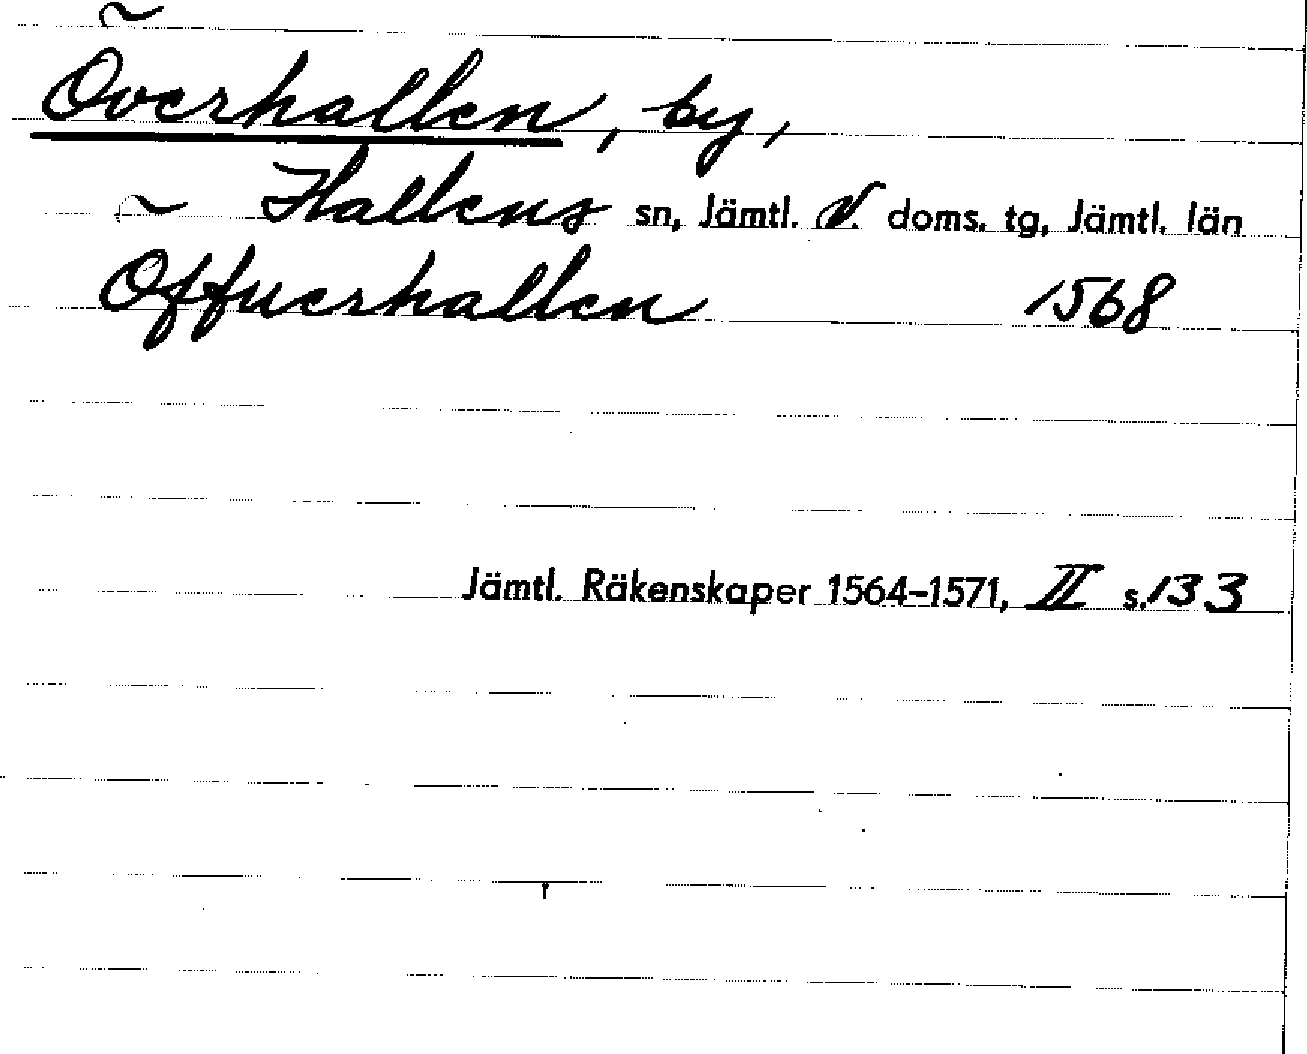 Överhallen, by,
Hallens sn, Jämtl. v. doms. tg, Jämtl. län
Öffuerhallen 1568
Jämtl. Räkenskaper 1564-1571, II s. 133